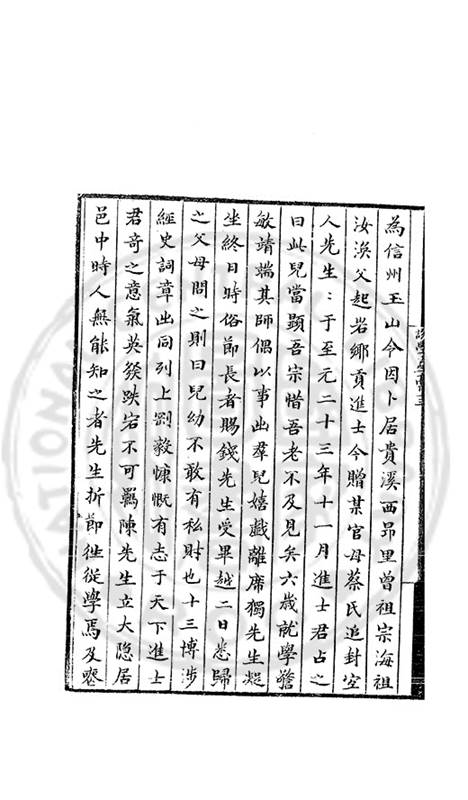 為信州玉山令因卜居貴溪西昴里曾祖宗海祖
汝渙父起岩鄉貢進士令贈某官母蔡氏追封空
人先生:于至元二十三年十一月進士君占之
曰此兒當顯吾宗惜吾老不及見矣六歲就學警
敏靖端其師偶以事出羣兒嬉戲離席獨先生凝
坐終日時俗節長者賜錢先生受畢越二日悉歸
之父母問之則曰兒幼不敢有私財也十三博涉
經史詞章出同列上剛毅慷慨有志于天下進士
君奇之意氣英發跌宕不可羈陳先生立大隐居
邑中時人無能知之者先生折節往從學焉及